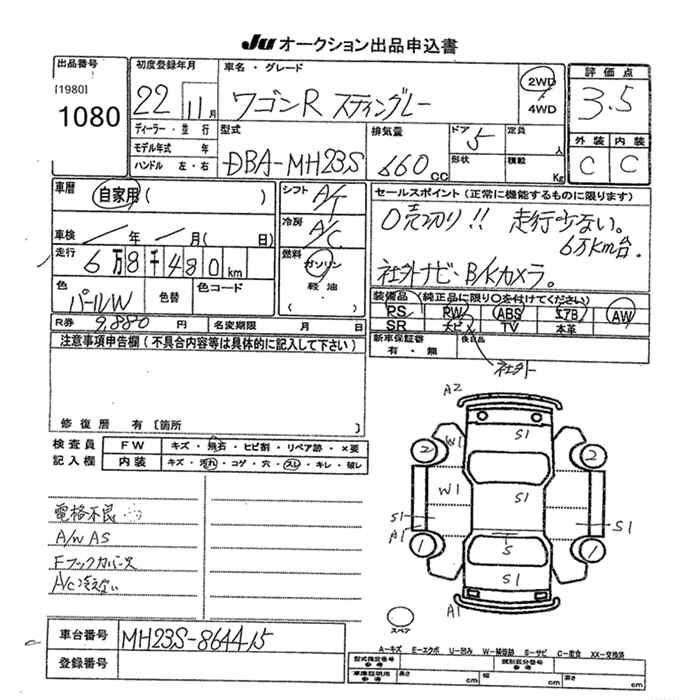 JU オークション出品申込書
出品番号
[1980]
1080
初度登録年月
22 11月
ディーラー・並行
モデル年式 年
ハンドル 左・右
車名・グレード
ワゴンR スティングレー
2WD
4WD
型式
DBA-MH23S
排気量
660 CC
ドア 5
形状
定員 人
積載 Kg
評価点
3.5
外装 内装
C C
車歴
自家用( )
車検 年 月( 日)
走行
6万8千480km
色
パールW
色替
色コード
シフト
A/T
冷房
A/C
燃料
ガソリン
軽油
( )
セールスポイント(正常に機能するものに限ります)
0売切り!! 走行少ない。
6万km台.
社外ナビ・B/Kカメラ。
装備品(純正品に限り○を付けてください)
PS PW ABS エアB AW
SR ナビ TV 本革
社外
新車保証書
有・無
後日品
R券 9,880 円 名変期限 月 日
注意事項申告欄(不具合内容等は具体的に記入して下さい)
修復歴 有〔箇所 〕
検査員
記入欄
FW キズ・飛石・ヒビ割・リペア跡・×要
内装 キズ・汚れ・コゲ・穴・スレ・キレ・破レ
電格不良
A/W AS
Fフックカバー欠
A/C冷えない
A2
S1
W1
2 2
W1
S1
S1
A1
S1
1 1
S
S1
A1
スペア
A-キズ E-エクボ U-凹み W-補修跡 S-サビ C-腐食 XX-交換済
車台番号 MH23S-864415
登録番号
型式指定番号
参考
類別区分番号
参考
車庫証明用
参考
長さ cm 幅 cm 高さ cm